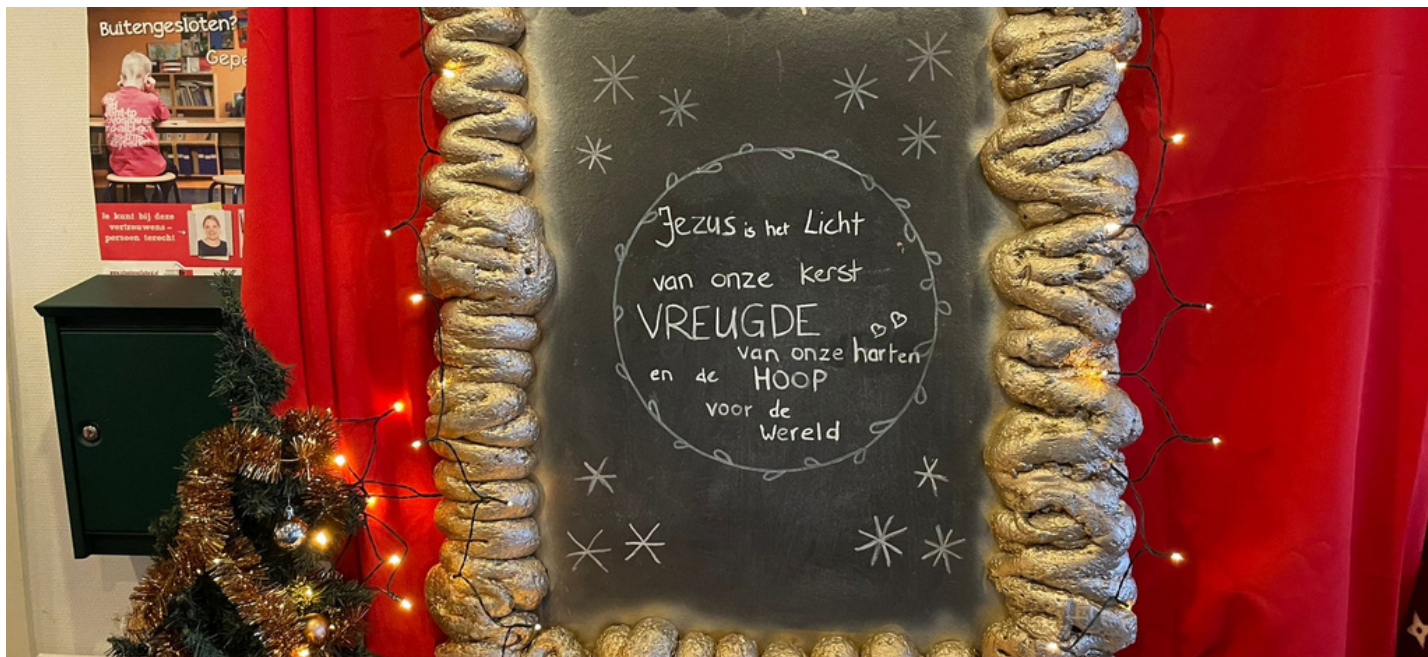 Buitengesloten?
Je kunt bij deze
vertrouwens-
persoon terecht!
Jezus is het Licht
van onze kerst
VREUGDE
van onze harten
en de HOOP
voor de
wereld